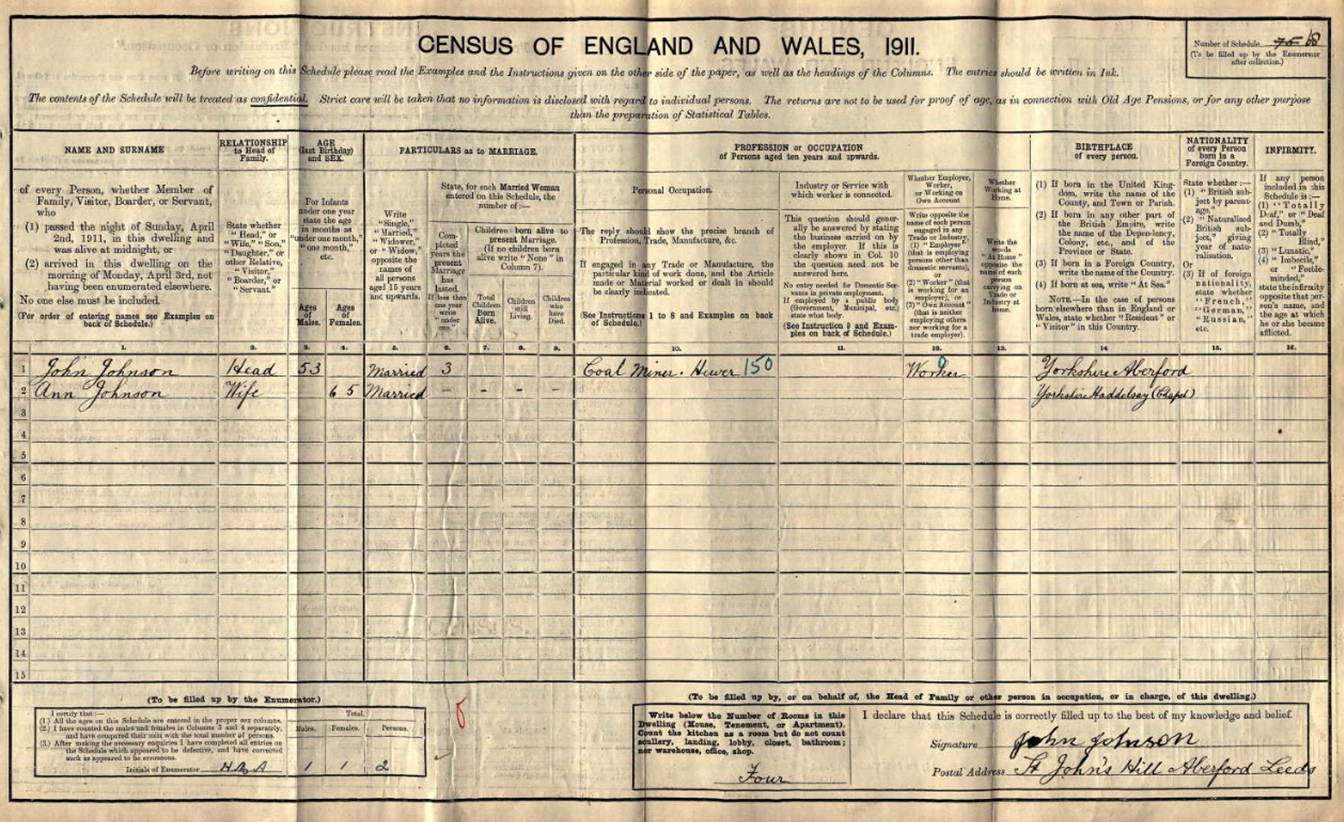 CENSUS OF ENGLAND AND WALES, 1911.
Number of Schedule 75 68
(To be filled up by the Enumerator
after collection.)
Before writing on this Schedule please read the Examples and the Instructions given on the other side of the paper, as well as the headings of the Columns. The entries should be written in Ink.
The contents of the Schedule will be treated as confidential. Strict care will be taken that no information is disclosed with regard to individual persons. The returns are not to be used for proof of age, as in connection with Old Age Pensions, or for any other purpose
than the preparation of Statistical Tables.
NAME AND SURNAME
of every Person, whether Member of
Family, Visitor, Boarder, or Servant,
who
(1) passed the night of Sunday, April
2nd, 1911, in this dwelling and
was alive at midnight, or
(2) arrived in this dwelling on the
morning of Monday, April 3rd, not
having been enumerated elsewhere.
No one else must be included.
(For order of entering names see Examples on
back of Schedule.)
RELATIONSHIP
to Head of
Family.
State whether
"Head," or
"Wife," "Son,"
"Daughter," or
other Relative,
"Visitor,"
"Boarder," or
"Servant."
AGE
(last Birthday)
and SEX.
For Infants
under one year
state the age
in months as
"under one month,"
"one month,"
etc.
Ages
of
Males.
Ages
of
Females.
PARTICULARS as to MARRIAGE.
Write
"Single,"
"Married,"
"Widower,"
or "Widow,"
opposite the
names of
all persons
aged 15 years
and upwards.
State, for each Married Woman
entered on this Schedule, the
number of :—
Com-
pleted
years the
present
Marriage
has
lasted.
If less than
one year
write
"under
one."
Children born alive to
present Marriage.
(If no children born
alive write "None" in
Column 7).
Total
Children
Born
Alive.
Children
still
Living.
Children
who
have
Died.
PROFESSION or OCCUPATION
of Persons aged ten years and upwards.
Personal Occupation.
The reply should show the precise branch of
Profession, Trade, Manufacture, &c.
If engaged in any Trade or Manufacture, the
particular kind of work done, and the Article
made or Material worked or dealt in should
be clearly indicated.
(See Instructions 1 to 8 and Examples on back
of Schedule.)
Industry or Service with
which worker is connected.
This question should gener-
ally be answered by stating
the business carried on by
the employer. If this is
clearly shown in Col. 10
the question need not be
answered here.
No entry needed for Domestic Ser-
vants in private employment.
If employed by a public body
(Government, Municipal, etc.)
state what body.
(See Instruction 9 and Exam-
ples on back of Schedule.)
Whether Employer,
Worker,
or Working on
Own Account
Write opposite the
name of each person
engaged in any
Trade or Industry
(1) "Employer"
(that is employing
persons other than
domestic servants),
or
(2) "Worker" (that
is working for an
employer), or
(3) "Own Account"
(that is neither
employing others
nor working for a
trade employer).
Whether
Working at
Home.
Write the
words
"At Home"
opposite the
name of each
person
carrying on
Trade or
Industry at
home.
BIRTHPLACE
of every person.
(1) If born in the United King-
dom, write the name of the
County, and Town or Parish.
(2) If born in any other part of
the British Empire, write
the name of the Dependency,
Colony, etc., and of the
Province or State.
(3) If born in a Foreign Country,
write the name of the Country.
(4) If born at sea, write "At Sea."
NOTE.—In the case of persons
born elsewhere than in England or
Wales, state whether "Resident" or
"Visitor" in this Country.
NATIONALITY
of every Person
born in a
Foreign Country.
State whether :—
(1) "British sub-
ject by parent-
age."
(2) "Naturalised
British sub-
ject," giving
year of natu-
ralisation.
Or
(3) If of foreign
nationality,
state whether
"French,"
"German,"
"Russian,"
etc.
INFIRMITY.
If any person
included in this
Schedule is :—
(1) "Totally
Deaf," or "Deaf
and Dumb,"
(2) "Totally
Blind,"
(3) "Lunatic,"
(4) "Imbecile,"
or "Feeble-
minded,"
state the infirmity
opposite that per-
son's name, and
the age at which
he or she became
afflicted.
1. 2. 3. 4. 5. 6. 7. 8. 9. 10. 11. 12. 13. 14 15. 16.
1 John Johnson Head 53 Married 3 Coal Miner. Hewer 150 Worker Yorkshire Aberford
2 Ann Johnson Wife 65 Married - - - - Yorkshire Haddelsay (Chapel)
3
4
5
6
7
8
9
10
11
12
13
14
15
(To be filled up by the Enumerator.)
I certify that :—
(1.) All the ages on this Schedule are entered in the proper sex columns.
(2.) I have counted the males and females in Columns 3 and 4 separately,
and have compared their sum with the total number of persons.
(3.) After making the necessary enquiries I have completed all entries on
the Schedule which appeared to be defective, and have corrected
such as appeared to be erroneous.
Initials of Enumerator
Total.
Males. Females. Persons.
1 1 2
(To be filled up by, or on behalf of, the Head of Family or other person in occupation, or in charge, of this dwelling.)
Write below the Number of Rooms in this
Dwelling (House, Tenement, or Apartment).
Count the kitchen as a room but do not count
scullery, landing, lobby, closet, bathroom;
nor warehouse, office, shop.
Four
I declare that this Schedule is correctly filled up to the best of my knowledge and belief.
Signature John Johnson
Postal Address St John's Hill Aberford Leeds